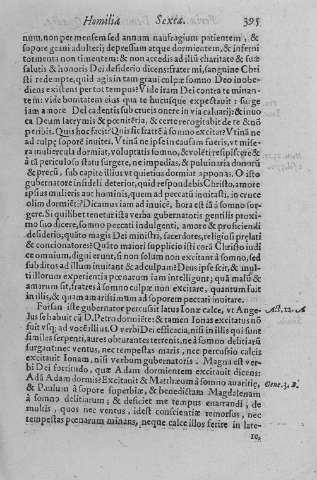 Homilia Sexta. 395
num, non per mensem sed annum naufragium patientem, &
sopore grani adulterij depressum atque dormientem, & inferni
tormenta non timentem: & non accedis ad illũ charitate & suæ
salutis & honoris Dei desiderio dicens: frater mi, sanguine Chri
sti redempte, quid agis in tam graui culpæ somno Deo inobe-
diens existens per tot tempus? Vide iram Dei contra te minan-
tem: vide bonitatem eius qua te hucusque expectauit: surge
iam a morte
peribit. Quis hoc facit? Quis sic fratrẽ à somno excitat? Vtinã ne
ad culpẽ soporẽ inuites. Vtinã ne ipse in eius usum fueris, vt mise-
ra mulierculа dormiat, voluptatis somno, & volẽti resipiscere &
à tã periculoso statu surgere, ne impedias, & puluinaria donorũ
& precũ, sub capite illius vt quietius dormiat apponas. O isto
gubernatore infideli deterior, quid respondebis Christo, amore
ipsius mulieris aut hominis, quem ad peccatũ inuitasti, in cruce
olim dormiẽti? Dicamus iam ad inuicẽ, hora est iã à somno sur-
gere. Si quilibet tenetur ista verba gubernatoris gentilis proxi-
mo suo dicere, somno peccati indulgenti, amore & proficiendi
desiderio, quãto magis Dei ministri, sacerdotes, religiosi prælati
& concionatores? Quãto maiori supplicio isti corã Christo iudi
ce omnium, digni erunt, si non solum non excitant à somno, sed
subditos ad illum inuitant & ad culpam? Deus ipse scit, & mul-
ti illorum experientia pœnarum iam intelligunt; quã malũ &
amarum sit, fratres à somno culpæ non excitare, quantum fuit
in illis, & quam amarissimum ad soporem peccati inuitare.
Forsan iste gubernator percussit latus Ionæ calce, vt Ange- Act. 12. A
lus fe habuit cũ D. Petro dormiẽte: & tamen Ionas excitatus nõ
fuit vsq; ad vocẽ illius. O verbi Dei efficacia, nisi in illis qui sunt
similes serpenti, aures obturantes terrenis, ne à somno delitiarũ
surgant: nec ventus, nec tempestas maris, nec percussio calcis
excitauit Ionam, nisi verbum gubernatoris. Magna est ver-
bi Dei fortitudo, quæ Adam dormientem excitauit dicens:
Adã Adam dormis? Excitauit & Matthæum à somno auaritiæ, Gene. 3. B.
& Paulum à sopore superbiæ, & benedictam Magdalenam
à somno delitiarum; & deficiet me tempus enarrandi, de
multis, quos nec ventus, idest conscientiæ remorsus, nec
tempestas pœnarum minans, neque calce illos ferire in late-
re,